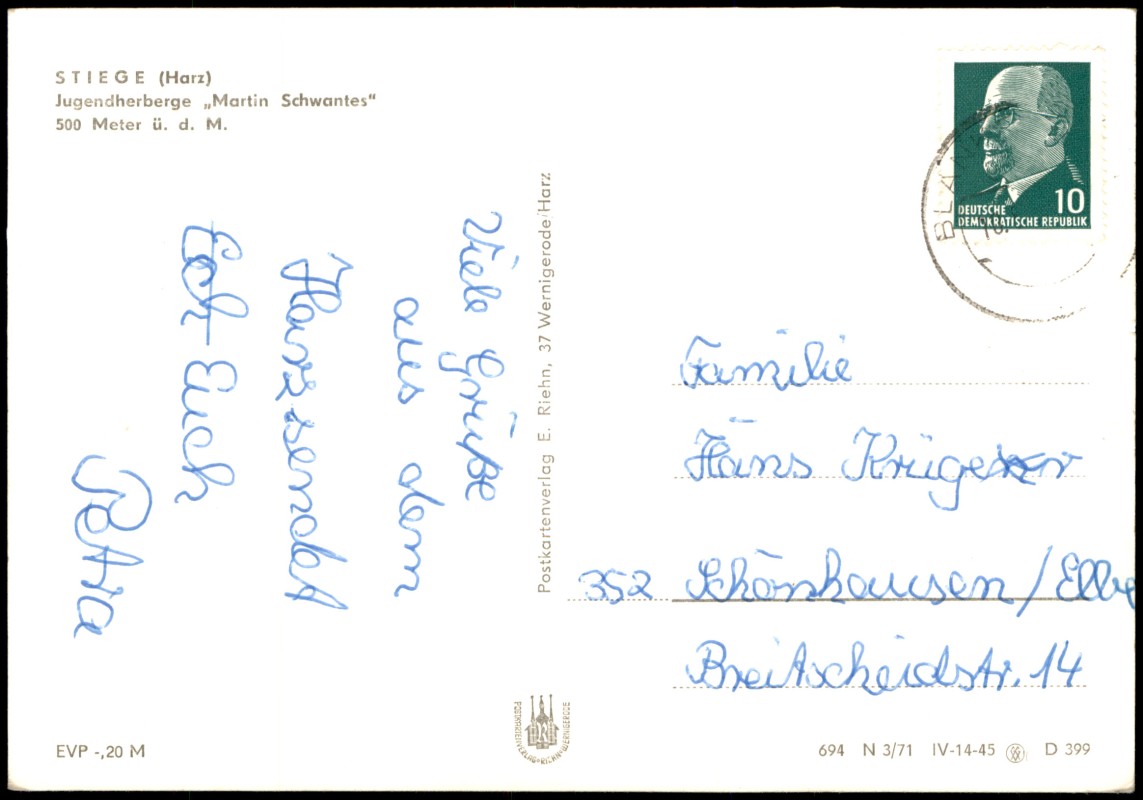 STIEGE (Harz)
Jugendherberge „Martin Schwantes“
500 Meter ü. d. M.
Viele Grüße
aus dem
Harz sendet
Euch
Petra
EVP -,20 M
Postkartenverlag E. Riehn, 37 Wernigerode/Harz
POSTKARTENVERLAG • RIEHN • WERNIGERODE
10
DEUTSCHE
DEMOKRATISCHE REPUBLIK
BLANK
Familie
Hans Krüger
352 Schönhausen/Elbe
Breitscheidstr. 14
694 N 3/71 IV-14-45 D 399